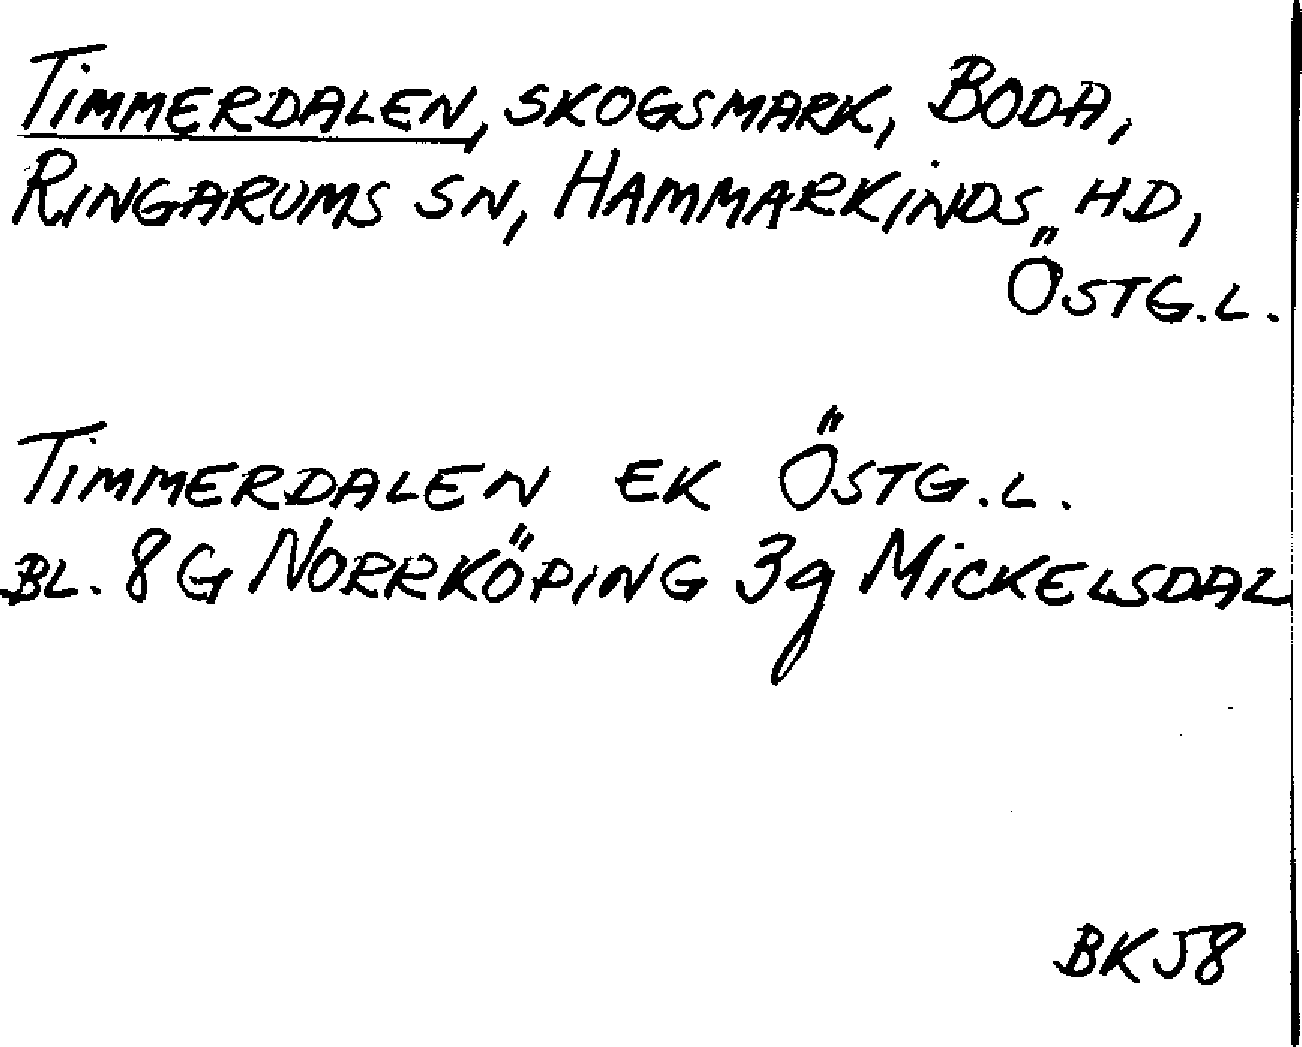 TIMMERDALEN, SKOGSMARK, BODA,
RINGARUMS SN, HAMMARKINDS HD,
ÖSTG.L.
TIMMERDALEN EK ÖSTG.L.
BL. 8G NORRKÖPING 3g MICKELSDAL
BK58